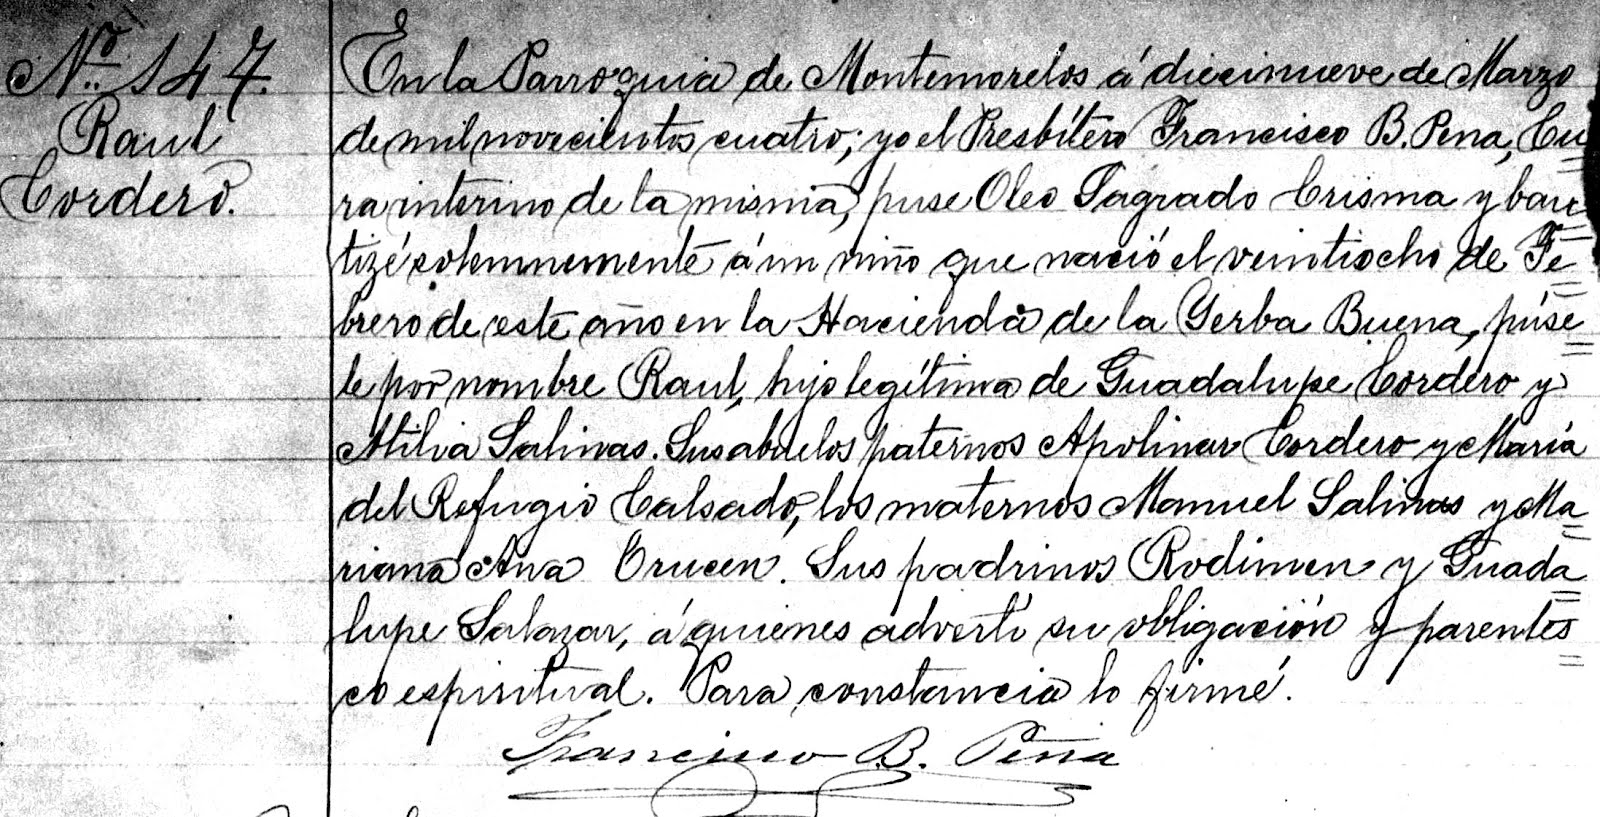 No. 147.
Raul
Cordero.
En la Parroquia de Montemorelos á diecinueve de Marzo
de mil novecientos cuatro; yo el Presbítero Francisco B. Pena, Cu=
ra interino de la misma, puse Oleo Sagrado Crisma y bau=
tizé solemnemente á un niño que nació el veintiocho de Fe=
brero de este año en la Hacienda de la Yerba Buena, púse=
le por nombre Raul, hijo legítimo de Guadalupe Cordero y
Otilia Salinas. Sus abuelos paternos Apolinar Cordero y María
del Refugio Calsado, los maternos Manuel Salinas y Ma=
riana Ana. Sus padrinos y Guada=
lupe Salazar, á quienes advertí su obligación y parentes=
co espiritual. Para constancia lo firmé.
Francisco B. Peña